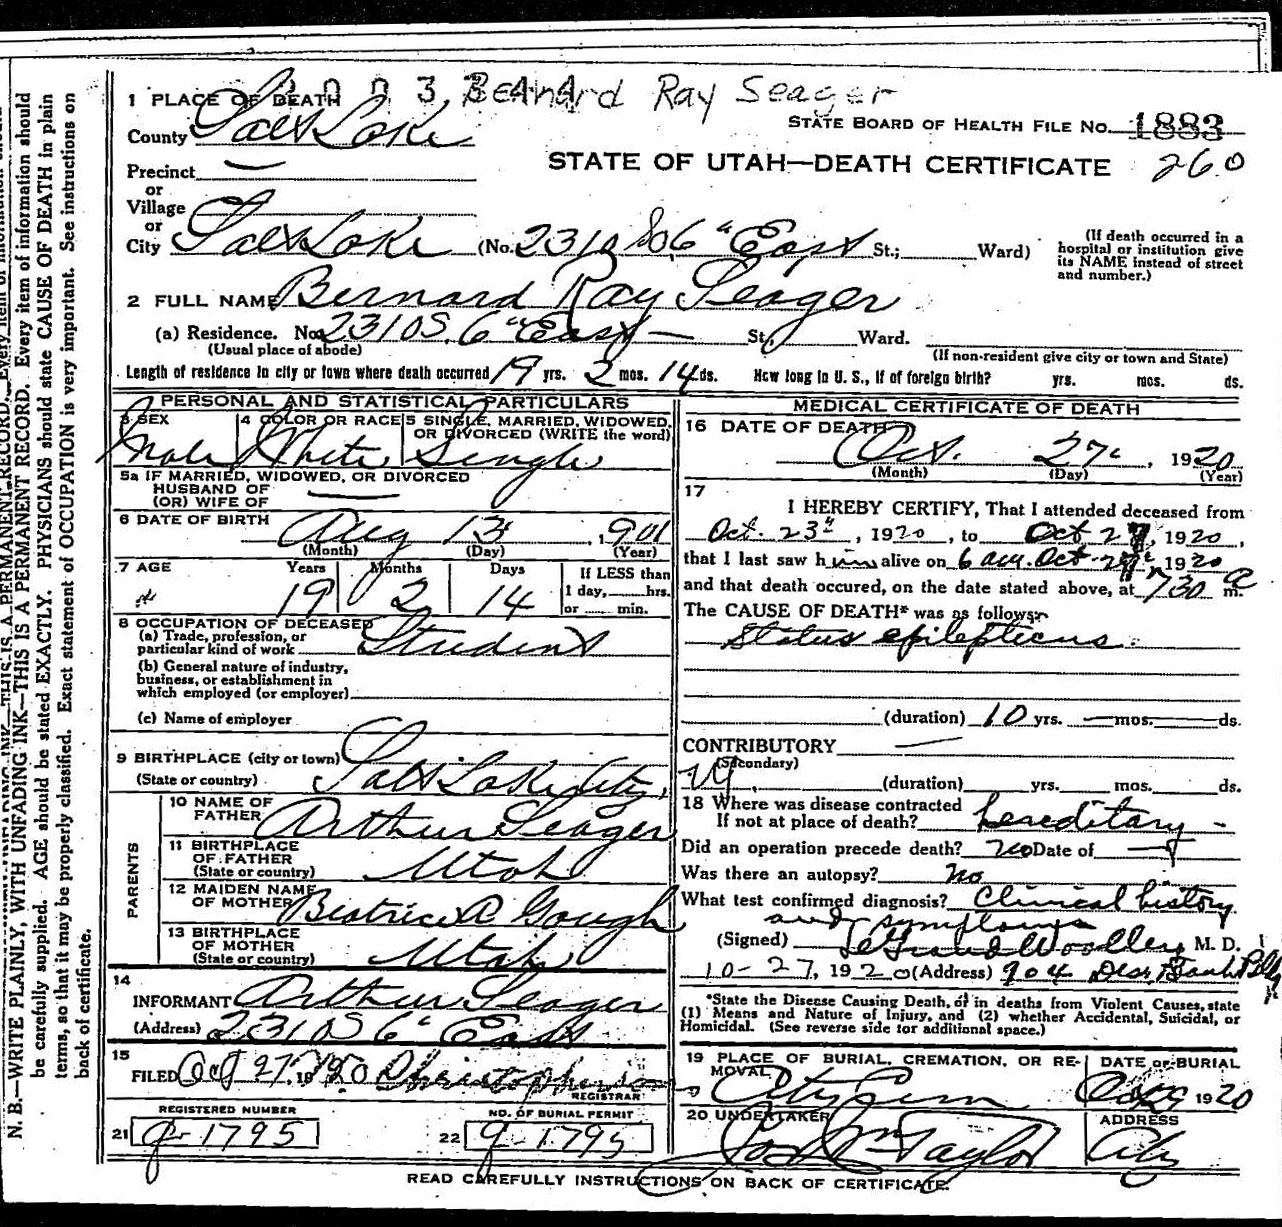 Bernard Ray Seager
1 PLACE OF DEATH
County Salt Lake
STATE BOARD OF HEALTH FILE No. 1883
STATE OF UTAH—DEATH CERTIFICATE 260
Precinct —
or
Village
or
City Salt Lake (No. 2310 So. 6" East St.; Ward)
(If death occurred in a hospital or institution give its NAME instead of street and number.)
2 FULL NAME Bernard Ray Seager
(a) Residence. No. 2310 S. 6" East — St., Ward.
(Usual place of abode) (If non-resident give city or town and State)
Length of residence in city or town where death occurred 19 yrs. 2 mos. 14 ds. How long in U. S., if of foreign birth? yrs. mos. ds.
PERSONAL AND STATISTICAL PARTICULARS
3 SEX 4 COLOR OR RACE 5 SINGLE, MARRIED, WIDOWED, OR DIVORCED (WRITE the word)
Male White Single
5a IF MARRIED, WIDOWED, OR DIVORCED
HUSBAND OF
(OR) WIFE OF —
6 DATE OF BIRTH Aug 13 , 1901
(Month) (Day) (Year)
7 AGE Years Months Days If LESS than
1 day, hrs.
or min.
19 2 14
8 OCCUPATION OF DECEASED
(a) Trade, profession, or
particular kind of work Student
(b) General nature of industry,
business, or establishment in
which employed (or employer)
(c) Name of employer
9 BIRTHPLACE (city or town)
(State or country) Salt Lake City,
PARENTS
10 NAME OF
FATHER Arthur Seager
11 BIRTHPLACE
OF FATHER
(State or country) Utah
12 MAIDEN NAME
OF MOTHER Beatrice A Gough
13 BIRTHPLACE
OF MOTHER
(State or country) Utah
14
INFORMANT Arthur Seager
(Address) 2310 S 6" East
15
FILED Oct 27, 1920 Christopherson
REGISTRAR
REGISTERED NUMBER NO. OF BURIAL PERMIT
21 g-1795 22 g-1795
MEDICAL CERTIFICATE OF DEATH
16 DATE OF DEATH
Oct. 27 , 1920
(Month) (Day) (Year)
17
I HEREBY CERTIFY, That I attended deceased from
Oct. 23", 1920, to Oct 27, 1920,
that I last saw him alive on 6 am. Oct 27", 1920
and that death occured, on the date stated above, at 730 a m.
The CAUSE OF DEATH* was as follows:
Status epilepticus
(duration) 10 yrs. — mos. — ds.
CONTRIBUTORY —
(Secondary)
(duration) yrs. mos. ds.
18 Where was disease contracted
If not at place of death? hereditary -
Did an operation precede death? No Date of —
Was there an autopsy? No
What test confirmed diagnosis? Clinical history
and symptoms
(Signed) LeGrand Woolley, M. D.
10-27, 1920 (Address) 904 Des. Bank Bldg
*State the Disease Causing Death, or in deaths from Violent Causes, state
(1) Means and Nature of Injury, and (2) whether Accidental, Suicidal, or
Homicidal. (See reverse side for additional space.)
19 PLACE OF BURIAL, CREMATION, OR REMOVAL DATE OF BURIAL
City Cem 1920
20 UNDERTAKER ADDRESS
Jos Wm Taylor City
READ CAREFULLY INSTRUCTIONS ON BACK OF CERTIFICATE.
N. B.—WRITE PLAINLY, WITH UNFADING INK—THIS IS A PERMANENT RECORD. Every item of information should
be carefully supplied. AGE should be stated EXACTLY. PHYSICIANS should state CAUSE OF DEATH in plain
terms, so that it may be properly classified. Exact statement of OCCUPATION is very important. See instructions on
back of certificate.